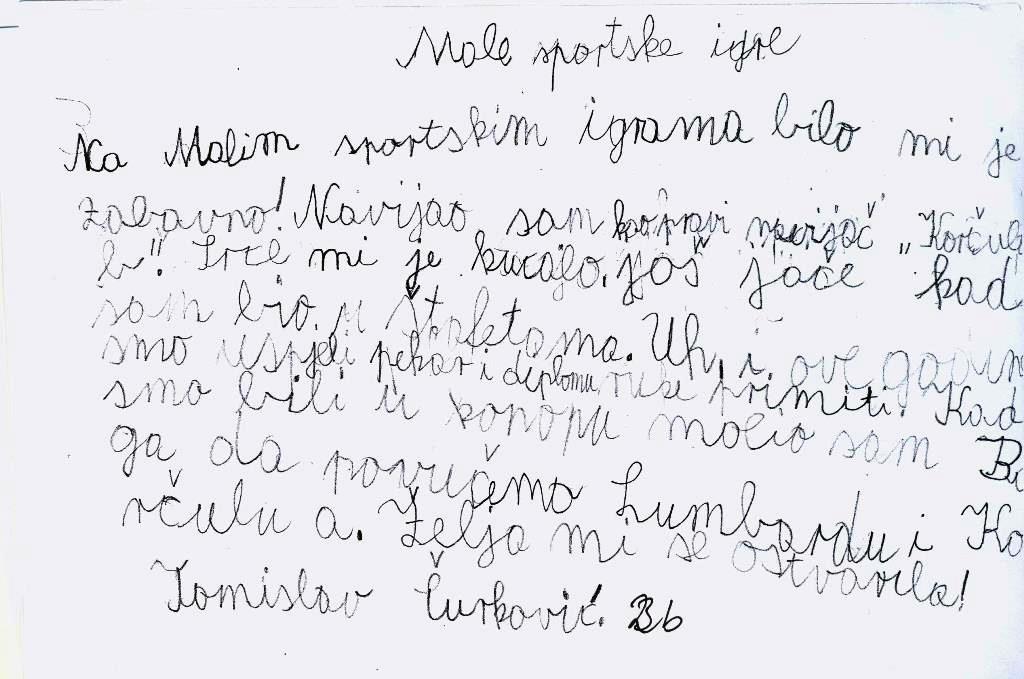 Male sportske igre
Na Malim sportskim igrama bilo mi je
zabavno! Navijao sam kao pravi navijač "Korčula
b". Srce mi je kucalo. još jače kad
sam bio u štafetama. Uh, i ove godine
smo uspjeli pehar i diplomu ruke primiti. Kad
smo bili u konopu molio sam Bo
ga da povučemo Lumbardu i Ko
rčulu a. Želja mi se ostvarila!
Tomislav Curković. 3b